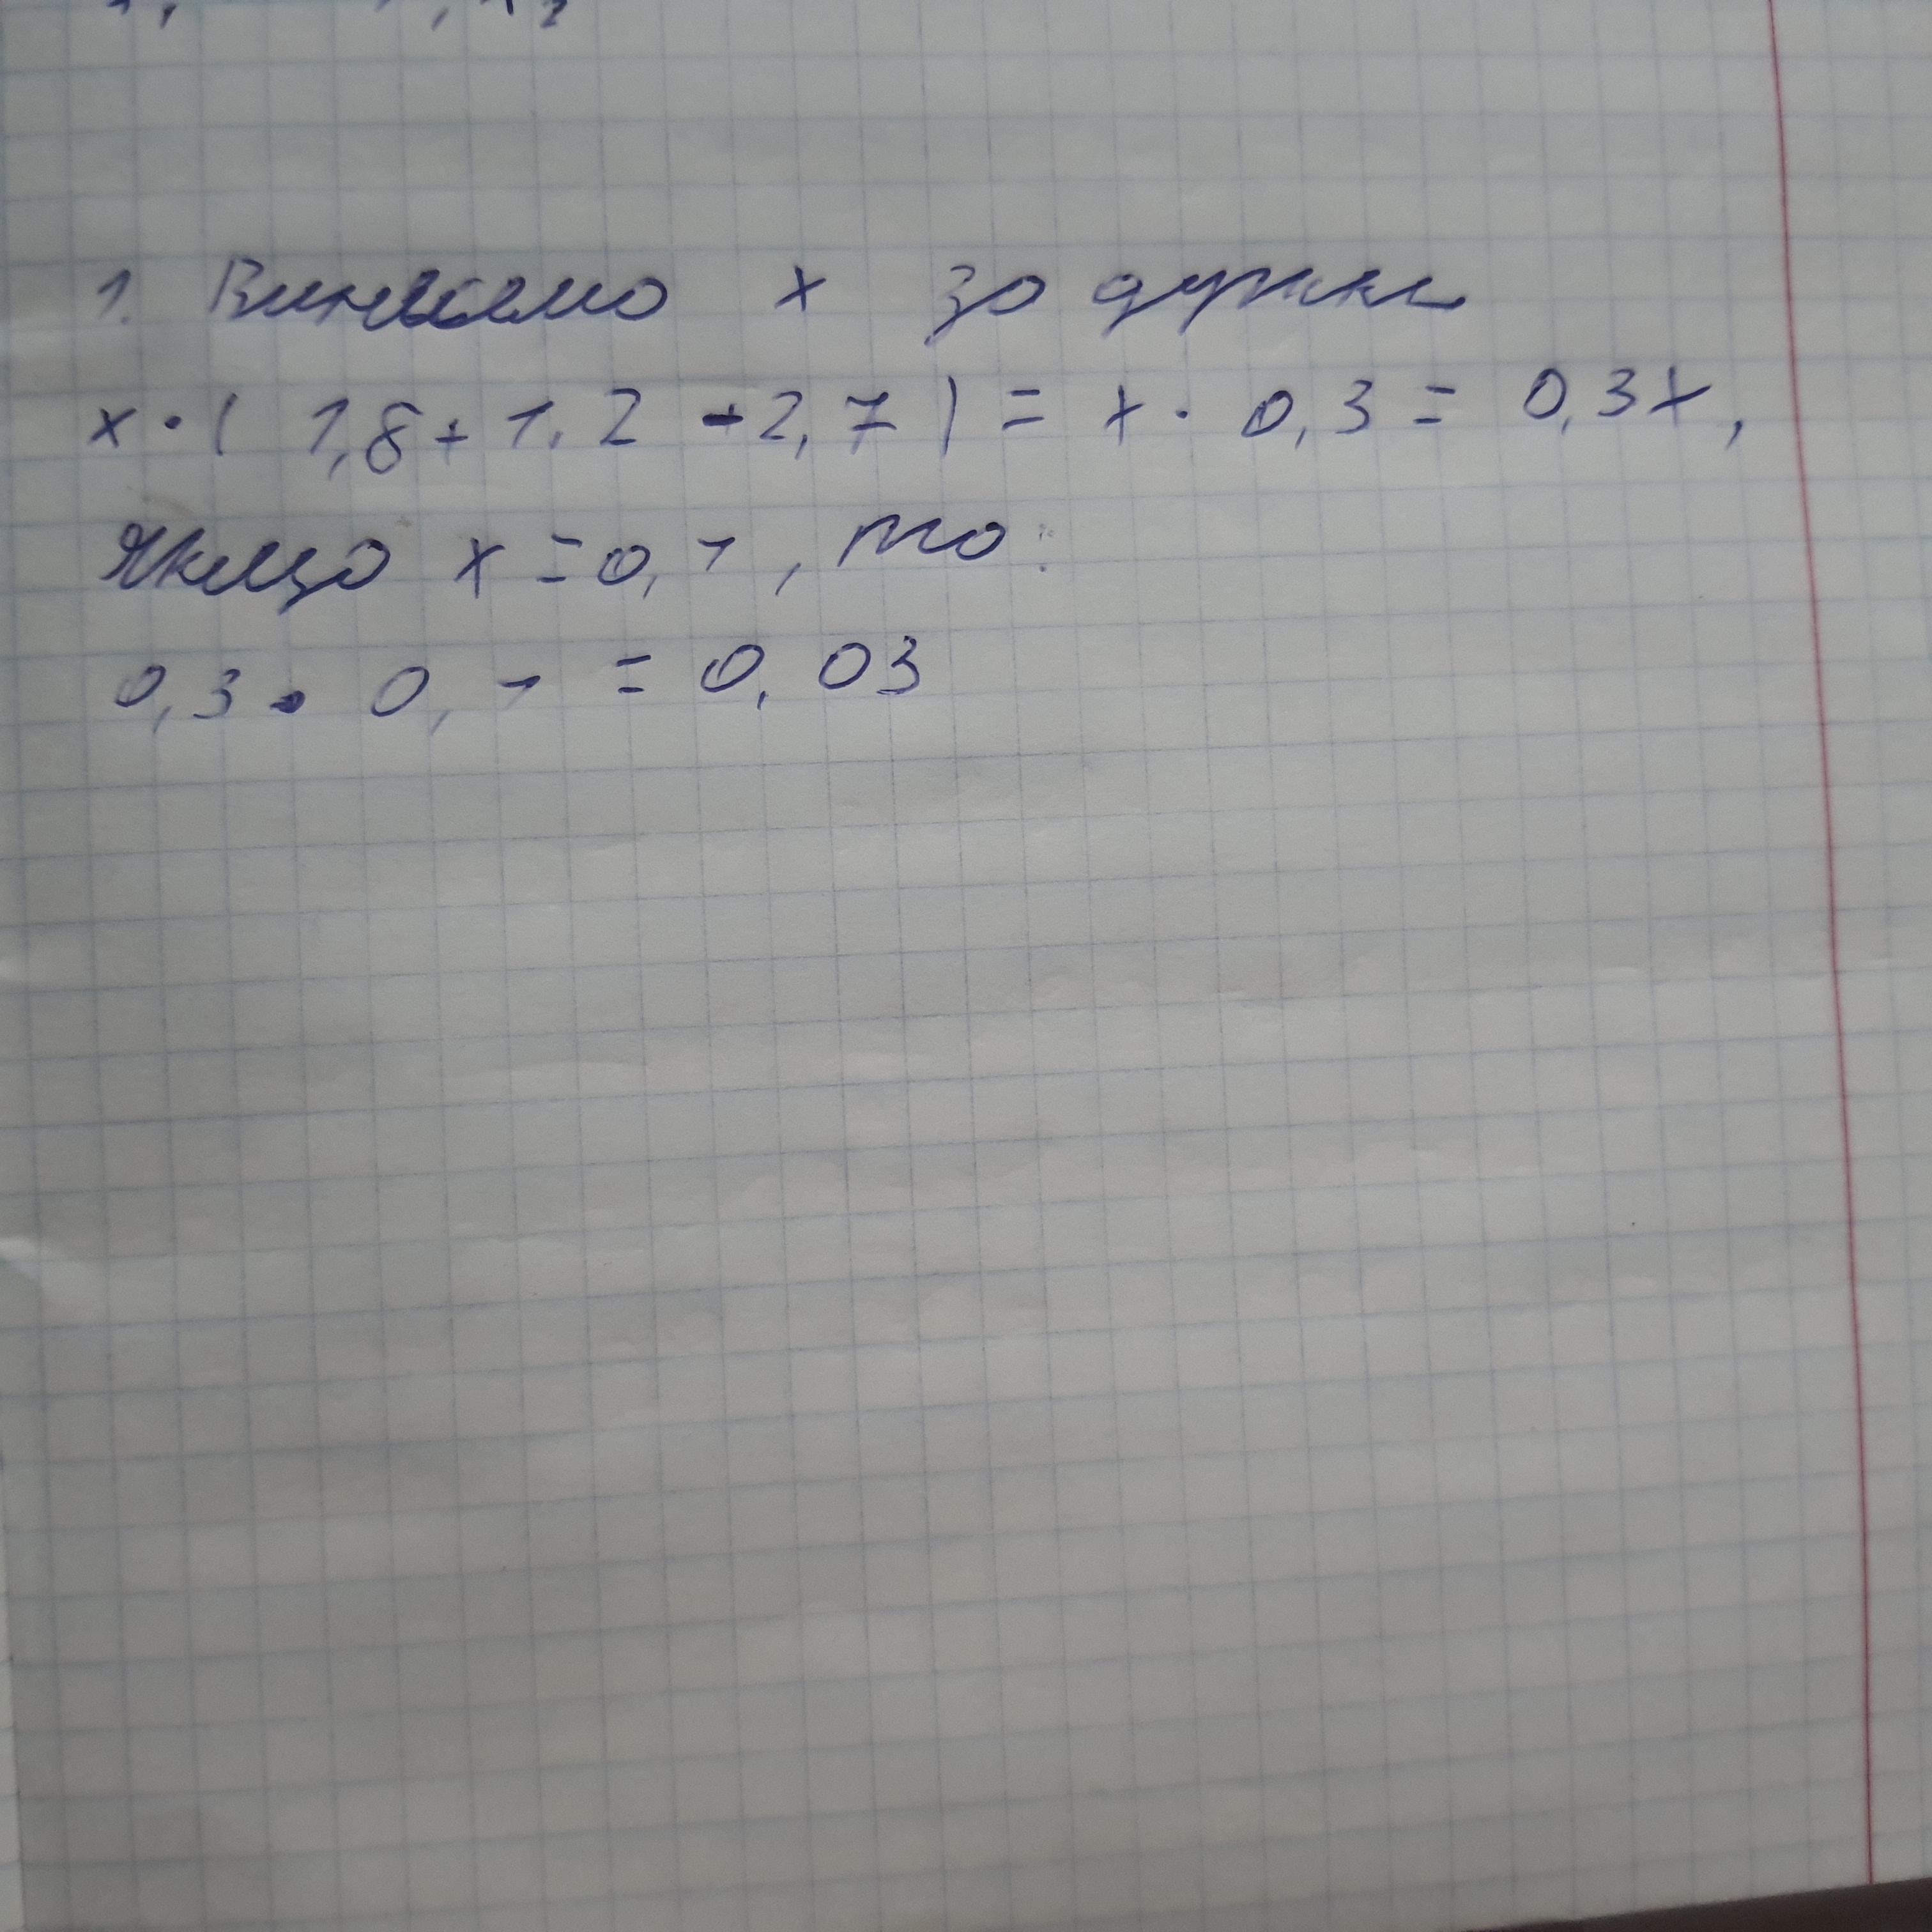 1. Винесемо x за дужки
x · ( 1,8 + 1,2 - 2,7 ) = x · 0,3 = 0,3x,
Якщо x = 0,1, то:
0,3 · 0,1 = 0,03